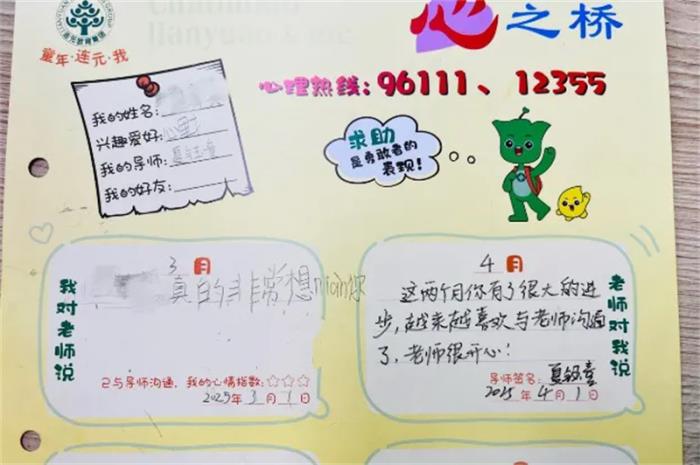 童年·连元·我
心之桥
心理热线:96111、12355
我的姓名:
兴趣爱好:
我的导师:
我的好友:
求助
是勇敢者的
表现!
3月
我对老师说
真的非常想niàn你
已与导师沟通,我的心情指数:☆☆☆
2025年3月1日
4月
老师对我说
这两个月你有了很大的进
步,越来越喜欢与老师沟通
了,老师很开心!
导师签名:
2025年4月1日